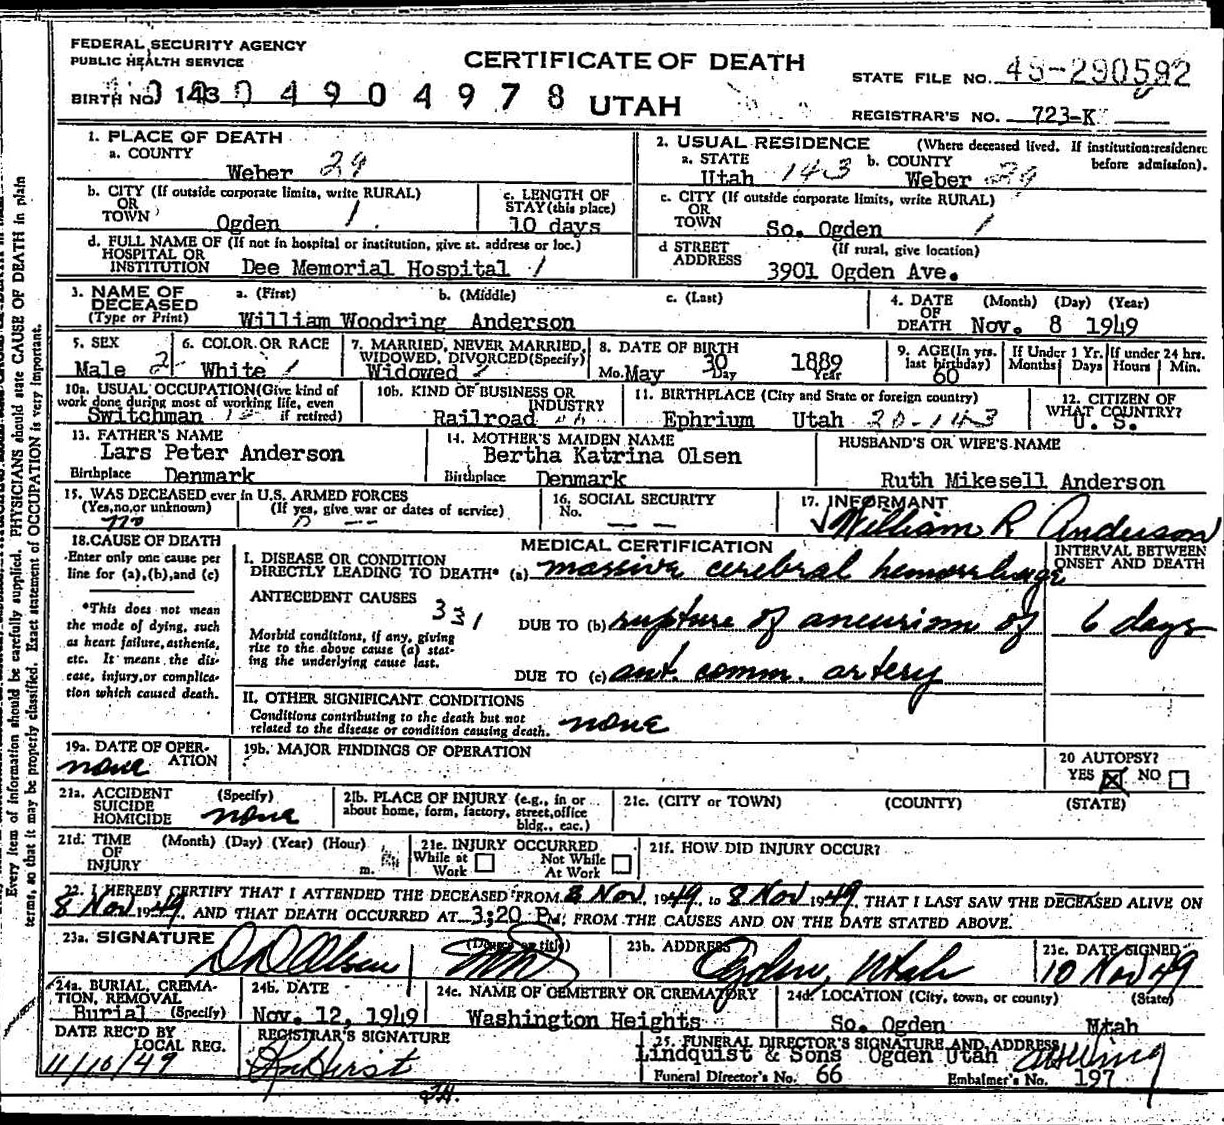 FEDERAL SECURITY AGENCY
PUBLIC HEALTH SERVICE
CERTIFICATE OF DEATH
STATE FILE NO. 49-290592
BIRTH NO. 143 04904978
UTAH
REGISTRAR'S NO. 723-K
1. PLACE OF DEATH
a. COUNTY
Weber 29
2. USUAL RESIDENCE (Where deceased lived. If institution:residence before admission).
a. STATE Utah 143 b. COUNTY Weber 29
b. CITY (If outside corporate limits, write RURAL)
OR
TOWN Ogden 1
c. LENGTH OF
STAY (this place)
10 days
c. CITY (If outside corporate limits, write RURAL)
OR
TOWN So. Ogden 1
d. FULL NAME OF (If not in hospital or institution, give st. address or loc.)
HOSPITAL OR
INSTITUTION Dee Memorial Hospital 1
d STREET (If rural, give location)
ADDRESS 3901 Ogden Ave.
3. NAME OF a. (First) b. (Middle) c. (Last)
DECEASED
(Type or Print) William Woodring Anderson
4. DATE (Month) (Day) (Year)
OF
DEATH Nov. 8 1949
5. SEX
Male 2
6. COLOR OR RACE
White 1
7. MARRIED, NEVER MARRIED,
WIDOWED, DIVORCED(Specify)
Widowed
8. DATE OF BIRTH
Mo. May 30 Day 1889 Year
9. AGE(In yrs.
last birthday)
60
If Under 1 Yr.
Months Days
If under 24 hrs.
Hours Min.
10a. USUAL OCCUPATION(Give kind of
work done during most of working life, even
if retired)
Switchman
10b. KIND OF BUSINESS OR
INDUSTRY
Railroad
11. BIRTHPLACE (City and State or foreign country)
Ephrium Utah 20-143
12. CITIZEN OF
WHAT COUNTRY?
U. S.
13. FATHER'S NAME
Lars Peter Anderson
Birthplace Denmark
14. MOTHER'S MAIDEN NAME
Bertha Katrina Olsen
Birthplace Denmark
HUSBAND'S OR WIFE'S NAME
Ruth Mikesell Anderson
15. WAS DECEASED ever in U.S. ARMED FORCES
(Yes,no,or unknown) (If yes, give war or dates of service)
no
16. SOCIAL SECURITY
No. — —
17. INFORMANT
William R Anderson
18. CAUSE OF DEATH
Enter only one cause per
line for (a),(b),and (c)
*This does not mean
the mode of dying, such
as heart failure, asthenia,
etc. It means the dis-
ease, injury, or complica-
tion which caused death.
MEDICAL CERTIFICATION
I. DISEASE OR CONDITION
DIRECTLY LEADING TO DEATH* (a) massive cerebral hemorrhage
INTERVAL BETWEEN
ONSET AND DEATH
ANTECEDENT CAUSES
331
Morbid conditions, if any, giving
rise to the above cause (a) stat-
ing the underlying cause last.
DUE TO (b) rupture of aneurism of
6 days
DUE TO (c) ant. comm. artery
II. OTHER SIGNIFICANT CONDITIONS
Conditions contributing to the death but not
related to the disease or condition causing death. none
19a. DATE OF OPER-
ATION
none
19b. MAJOR FINDINGS OF OPERATION
20 AUTOPSY?
YES ☒ NO ☐
21a. ACCIDENT (Specify)
SUICIDE
HOMICIDE none
21b. PLACE OF INJURY (e.g., in or
about home, form, factory, street,office
bldg., eac.)
21c. (CITY or TOWN) (COUNTY) (STATE)
21d. TIME (Month) (Day) (Year) (Hour)
OF
INJURY m.
21e. INJURY OCCURRED
While at Work ☐ Not While At Work ☐
21f. HOW DID INJURY OCCUR?
22. I HEREBY CERTIFY THAT I ATTENDED THE DECEASED FROM 8 Nov, 1949, to 8 Nov 1949, THAT I LAST SAW THE DECEASED ALIVE ON
8 Nov 1949, AND THAT DEATH OCCURRED AT 3:20 Pm; FROM THE CAUSES AND ON THE DATE STATED ABOVE.
23a. SIGNATURE (Degree or title)
D D Olsen MD
23b. ADDRESS
Ogden, Utah
23c. DATE SIGNED
10 Nov 49
24a. BURIAL, CREMA-
TION, REMOVAL
Burial (Specify)
24b. DATE
Nov. 12, 1949
24c. NAME OF CEMETERY OR CREMATORY
Washington Heights
24d. LOCATION (City, town, or county) (State)
So. Ogden Utah
DATE REC'D BY
LOCAL REG.
11/10/49
REGISTRAR'S SIGNATURE
25. FUNERAL DIRECTOR'S SIGNATURE AND ADDRESS
Lindquist & Sons Ogden Utah
Funeral Director's No. 66 Embalmer's No. 197
Every item of information should be carefully supplied. PHYSICIANS should state CAUSE OF DEATH in plain
terms, so that it may be properly classified. Exact statement of OCCUPATION is very important.